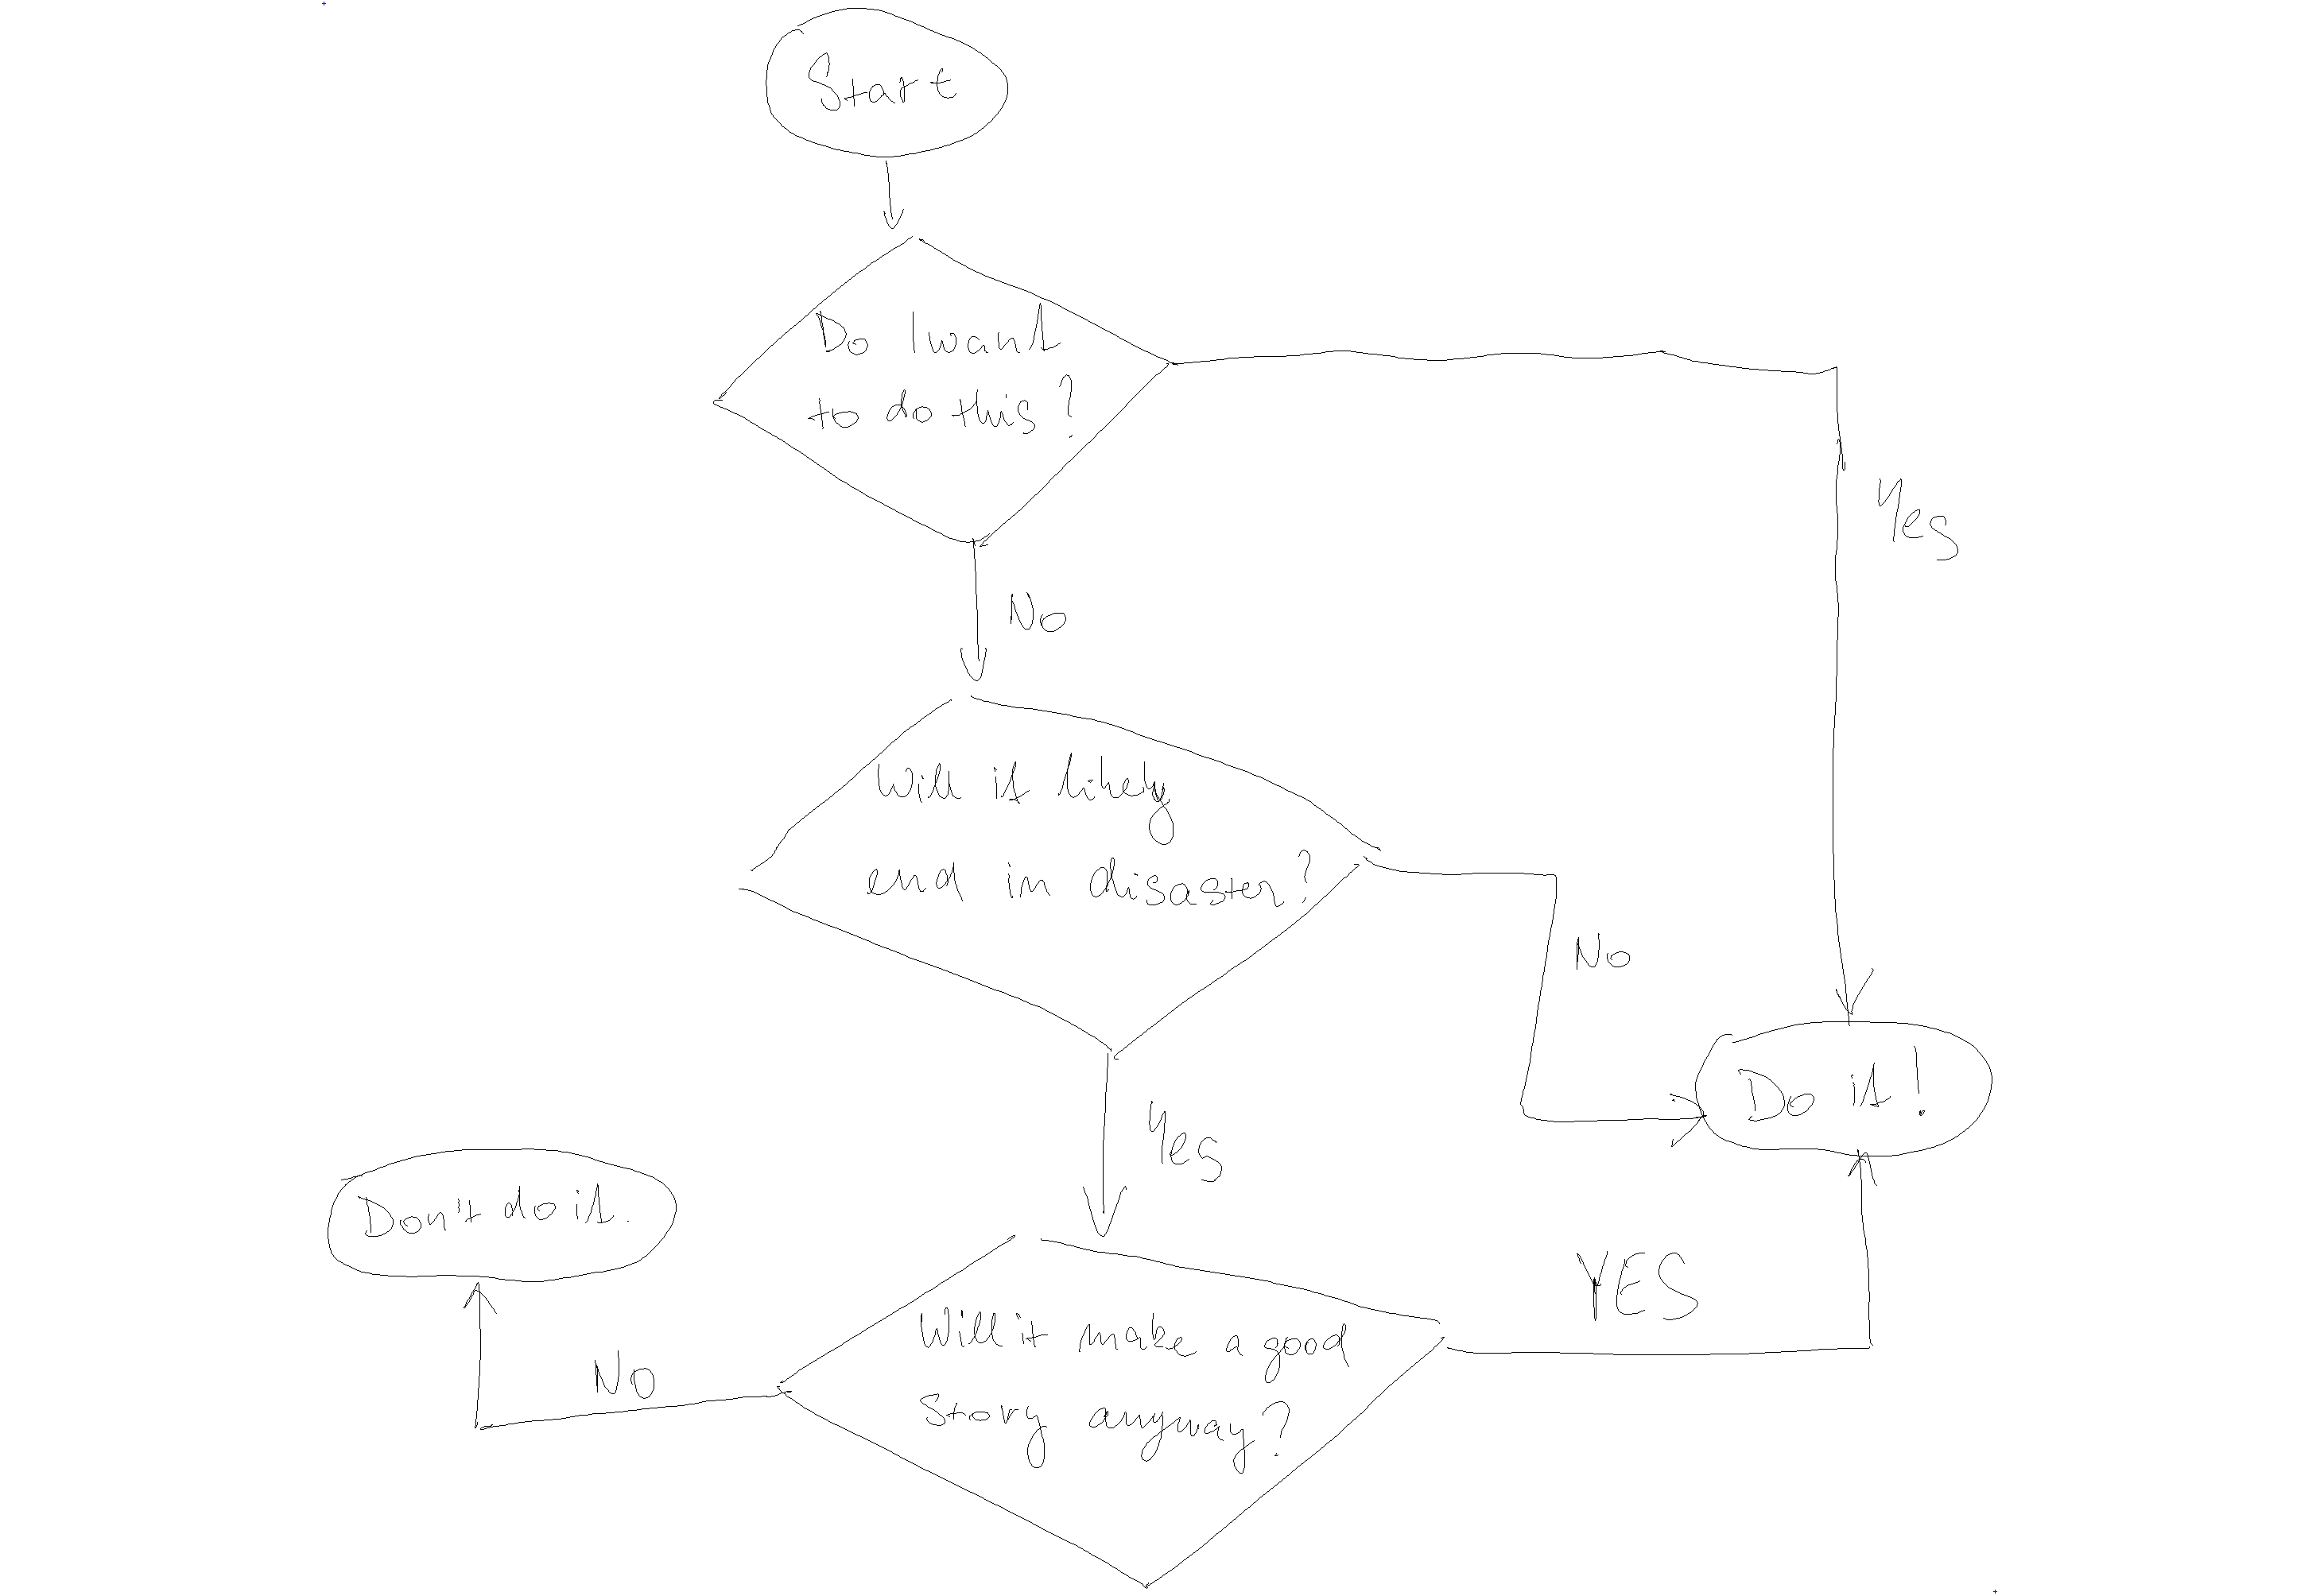 Start
Do I want
to do this?
Yes
No
Will it likely
end in disaster?
No
Do it!
Yes
Don't do it.
Will it make a good
story anyway?
YES
No